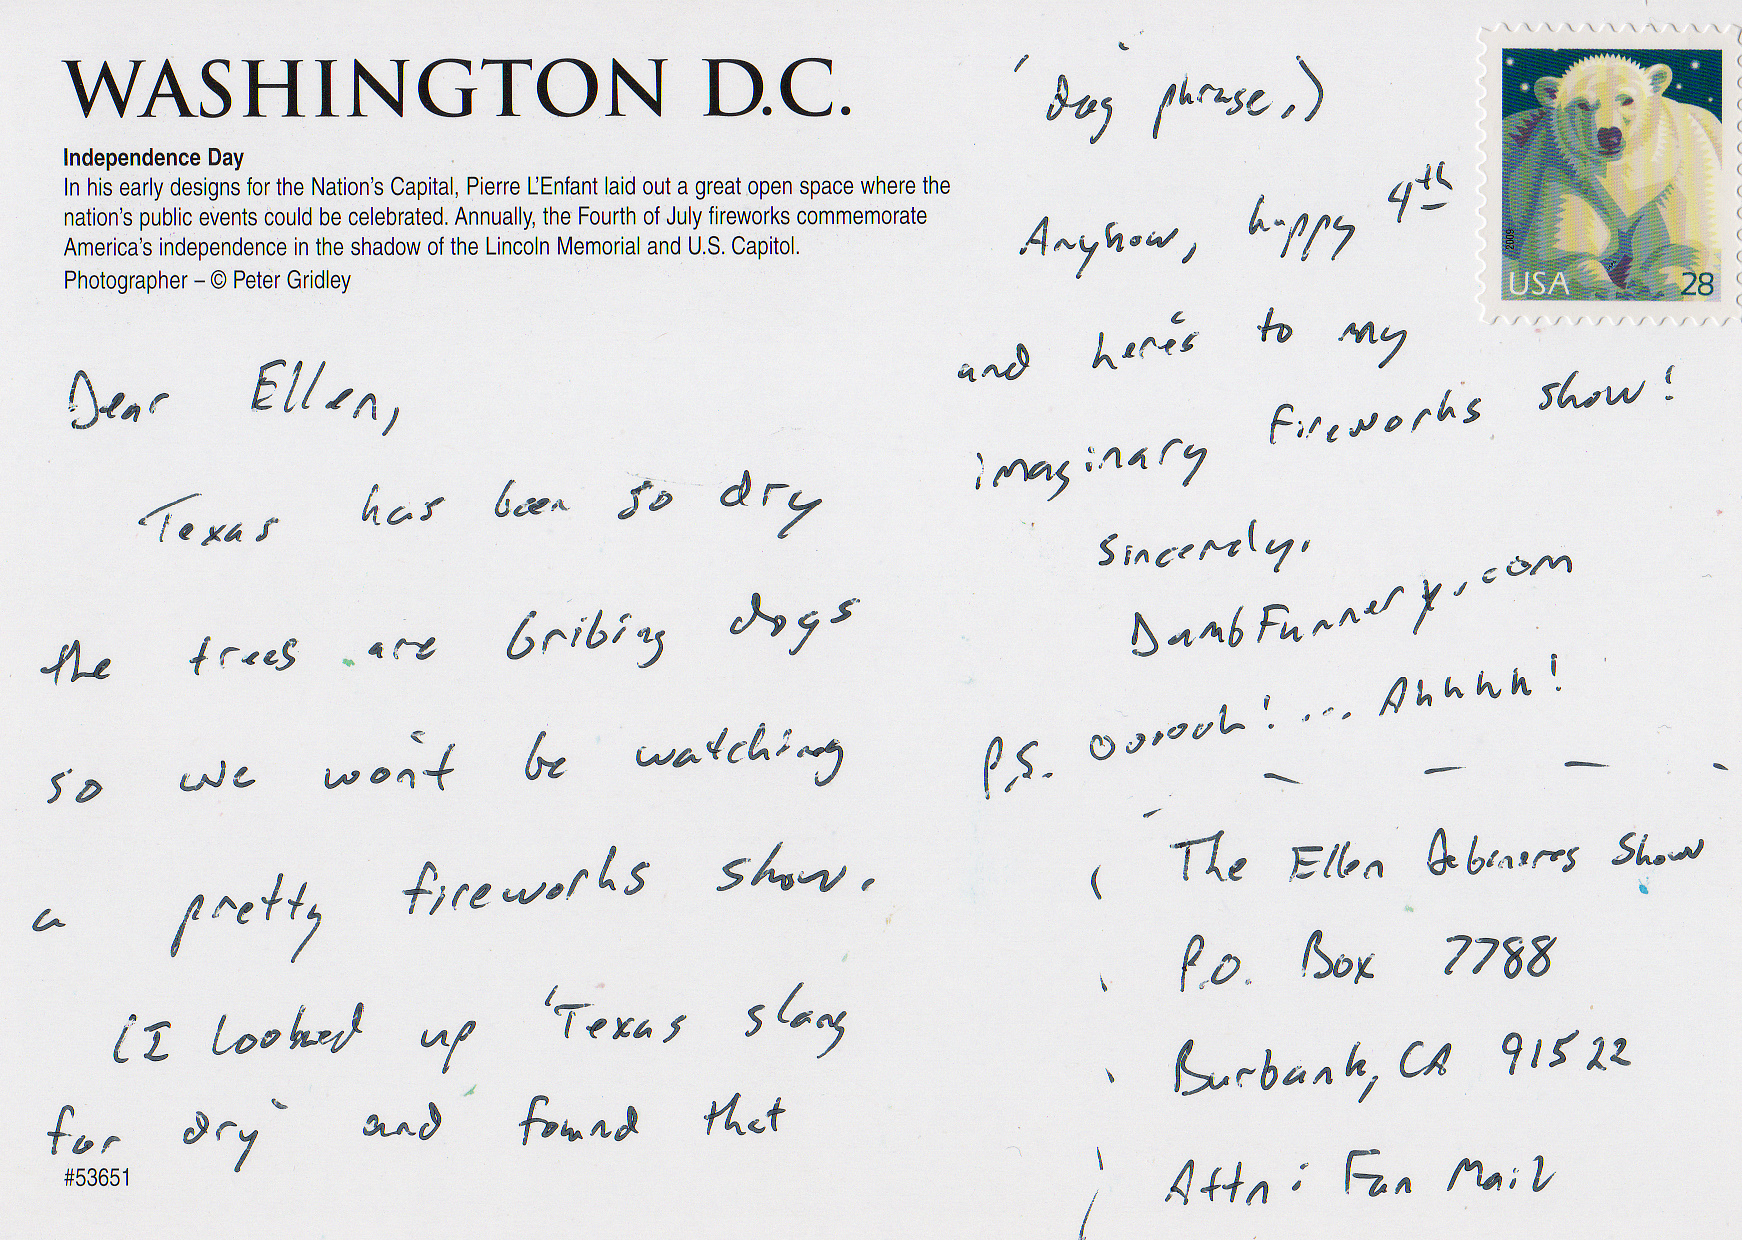 WASHINGTON D.C.
Independence Day
In his early designs for the Nation's Capital, Pierre L'Enfant laid out a great open space where the
nation's public events could be celebrated. Annually, the Fourth of July fireworks commemorate
America's independence in the shadow of the Lincoln Memorial and U.S. Capitol.
Photographer – © Peter Gridley
Dear Ellen,
Texas has been so dry
the trees are bribing dogs
so we won't be watching
a pretty fireworks show.
(I looked up "Texas slang
for dry" and found that
#53651
"dog" phrase.)
Anyhow, happy 4th
and here's to my
imaginary fireworks show!
Sincerely,
DumbFunnery.com
P.S. Oooooh! ... Ahhhh!
The Ellen Show
P.O. Box 7788
Burbank, CA 91522
Attn: Fan Mail
2009
USA 28